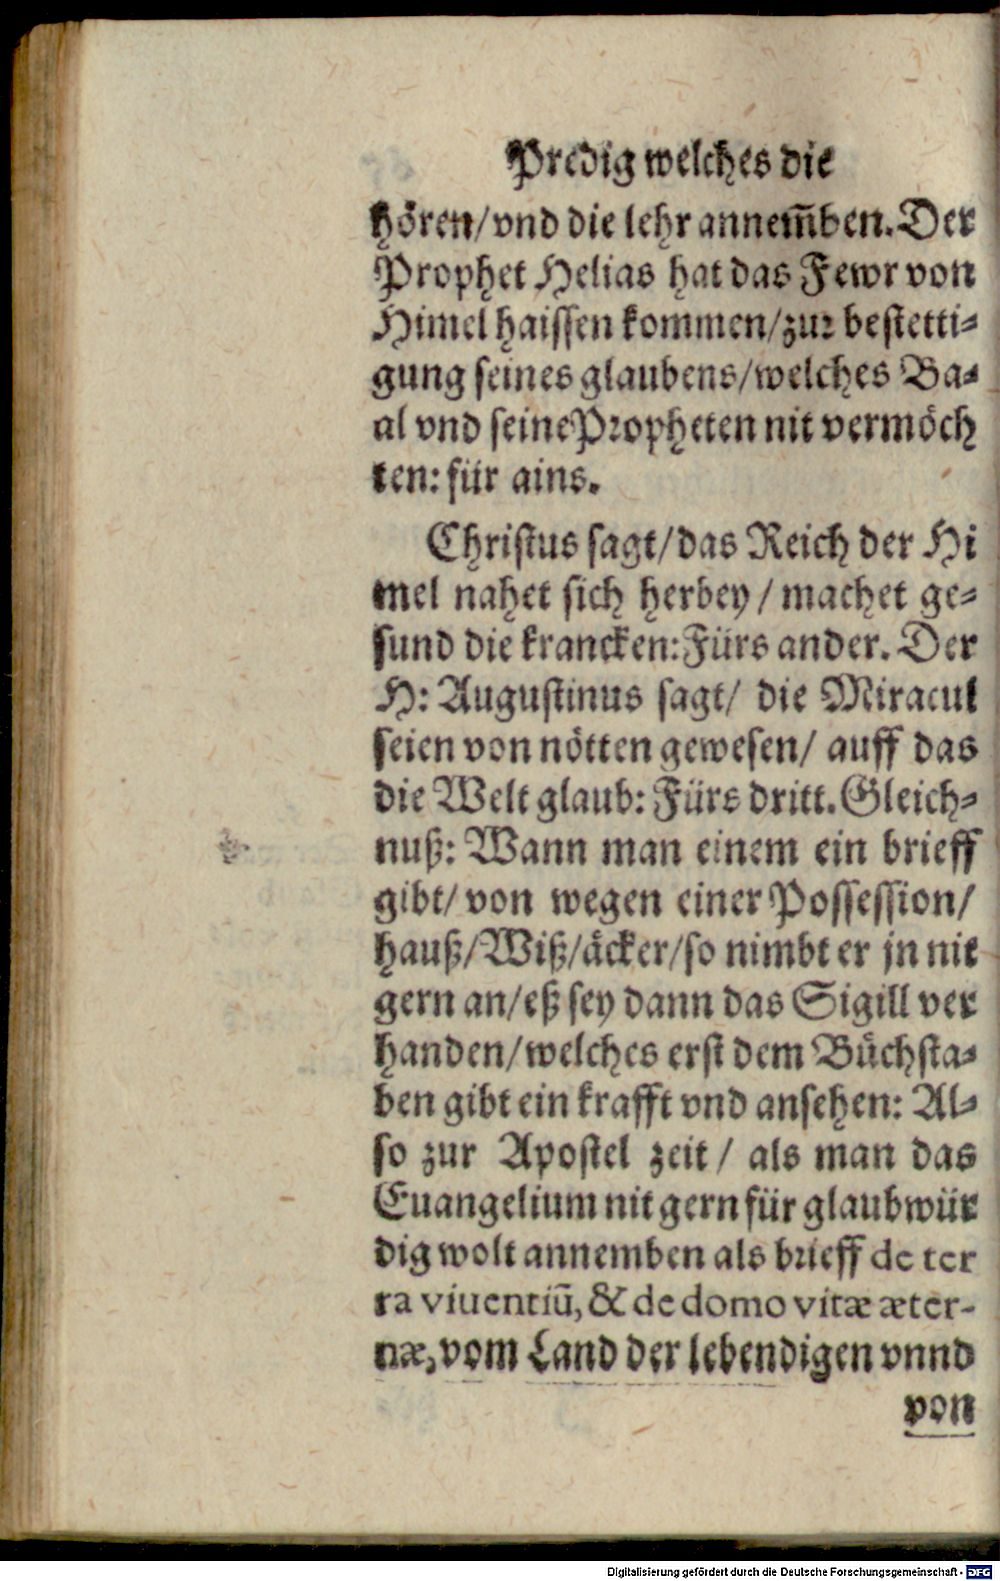 Predig welches die
hören/vnd die lehr annem̃ben. Der
Prophet Helias hat das Fewr von
Himel haissen kommen/zur bestetti⸗
gung seines glaubens/welches Ba⸗
al vnd seine Propheten nit vermöch
ten: für ains.
Christus sagt/das Reich der Hi
mel nahet sich herbey/ machet ge⸗
sund die krancken: Fürs ander. Der
H: Augustinus sagt/ die Miracul
seien von nötten gewesen/ auff das
die Welt glaub: Fürs dritt. Gleich⸗
nuß: Wann man einem ein brieff
gibt/ von wegen einer Possession/
hauß/Wiß/äcker/so nimbt er jn nit
gern an/eß sey dann das Sigill ver
handen/welches erst dem Bůchsta⸗
ben gibt ein krafft vnd ansehen: Al⸗
so zur Apostel zeit/ als man das
Euangelium nit gern für glaubwür
dig wolt annemben als brieff de ter
ra viuentiū, & de domo vitæ æter-
næ, vom Land der lebendigen vnnd
von
Digitalisierung gefördert durch die Deutsche Forschungsgemeinschaft - DFG